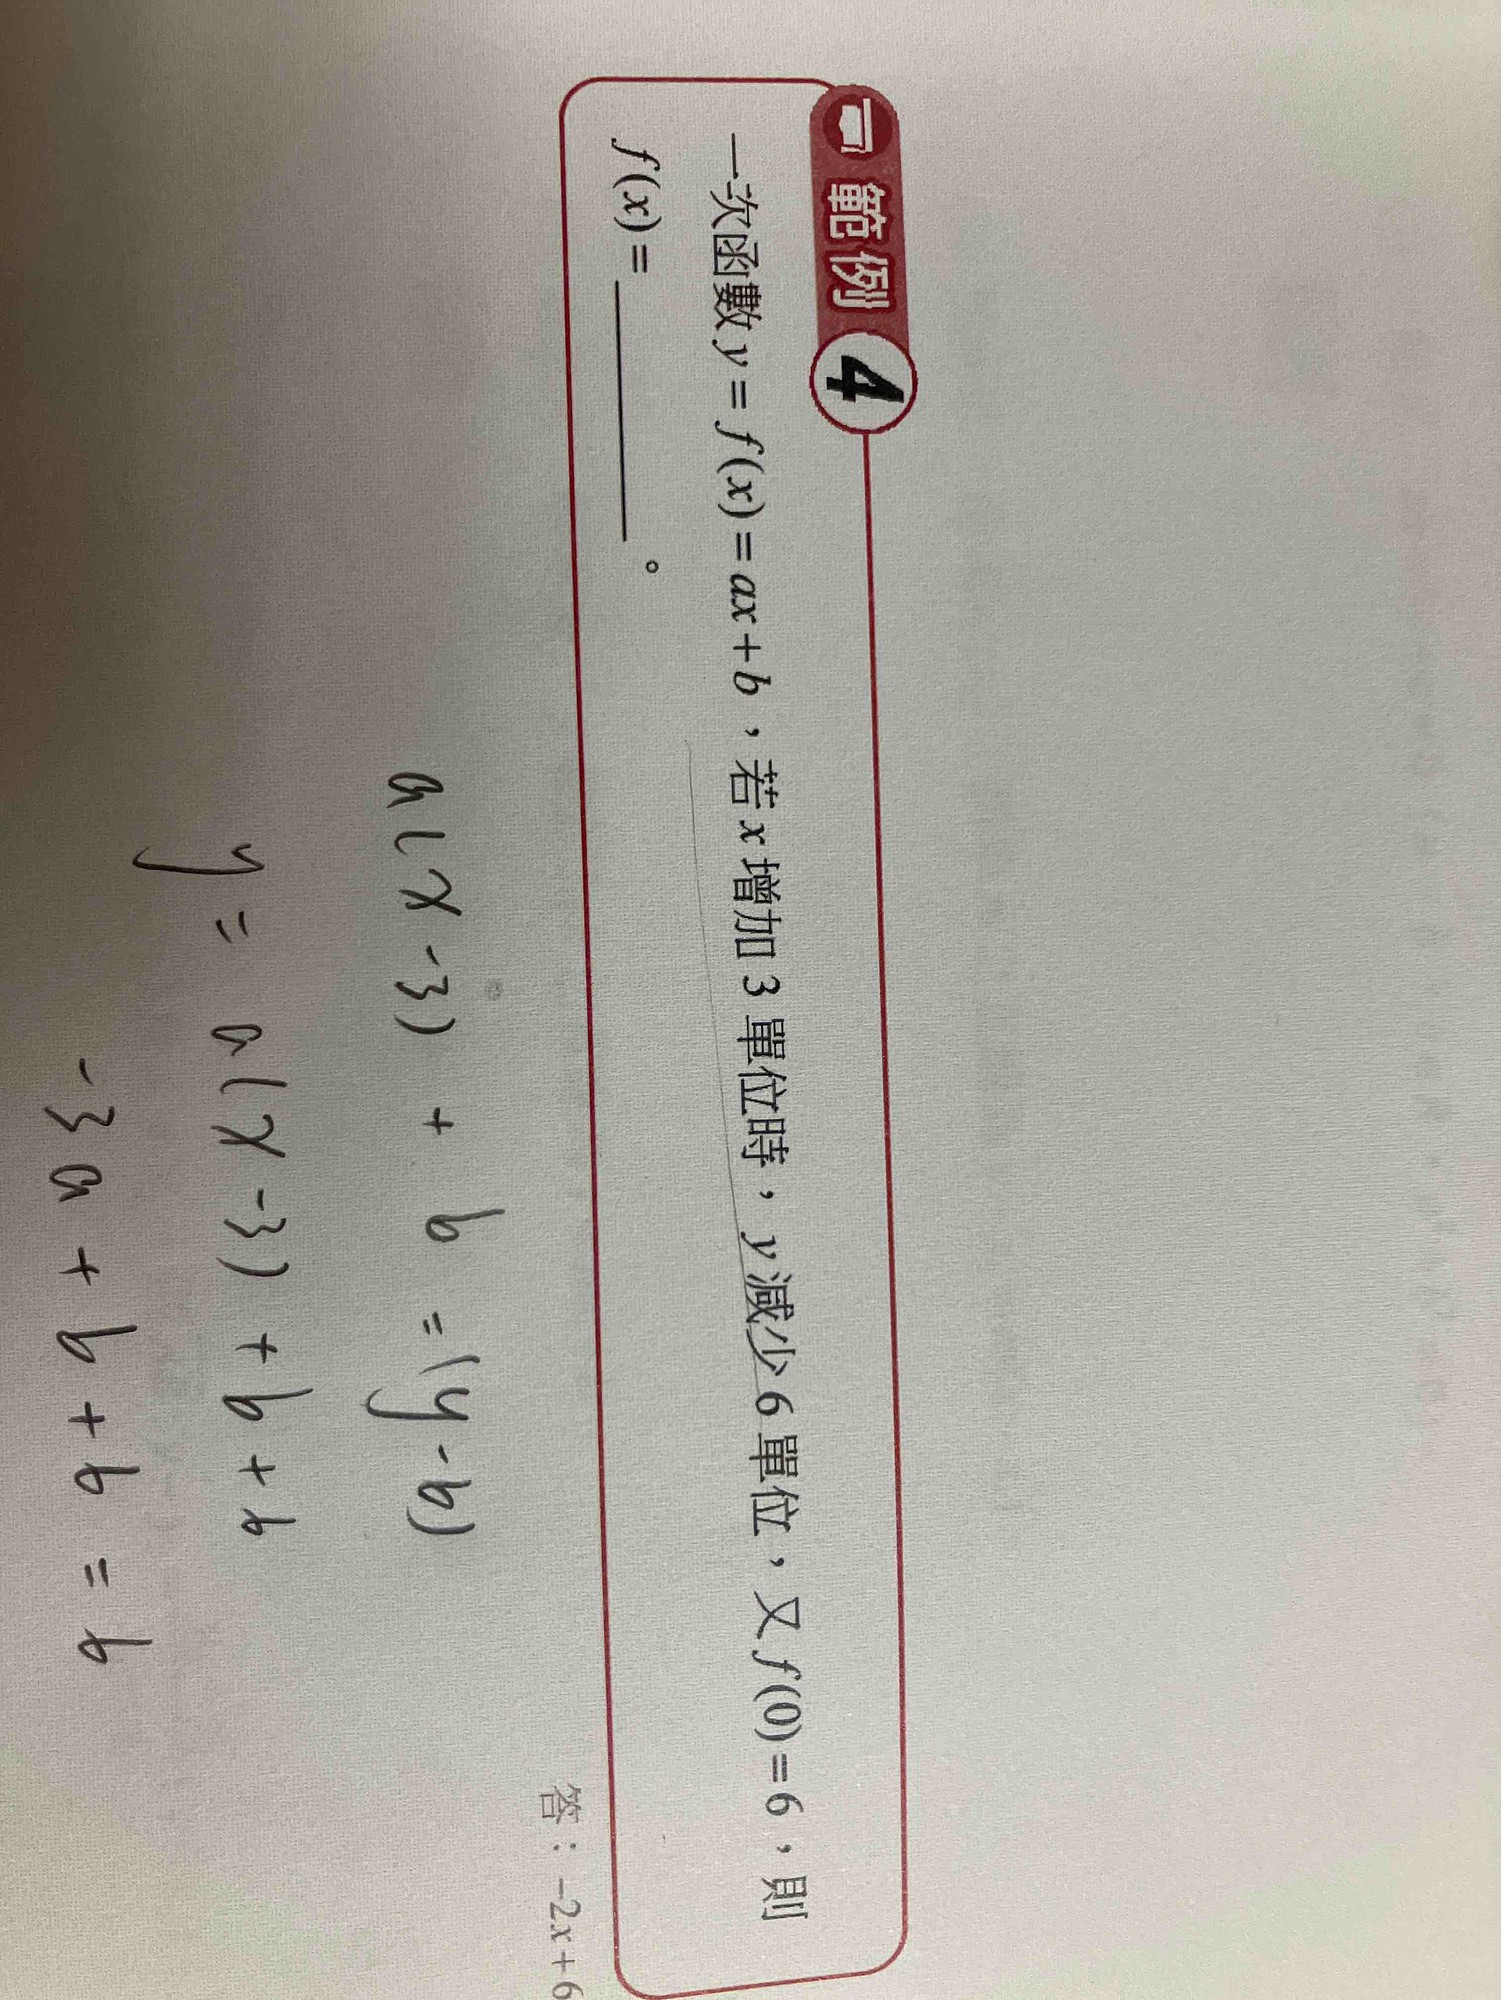 範例 4
一次函數 y = f(x) = ax + b，若 x 增加 3 單位時，y 減少 6 單位，又 f(0) = 6，則
f(x) = ________。
答：-2x + 6
a(x-3) + b = (y-6)
y = a(x-3) + b + 6
-3a + b + 6 = 6